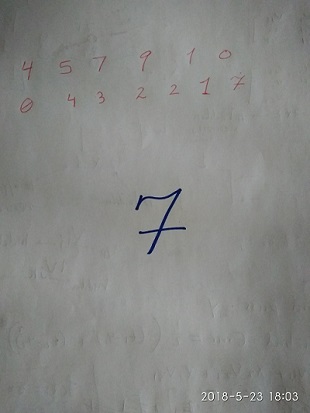 4 5 7 9 1 0
0 4 3 2 2 1 7
7
2018-5-23 18:03